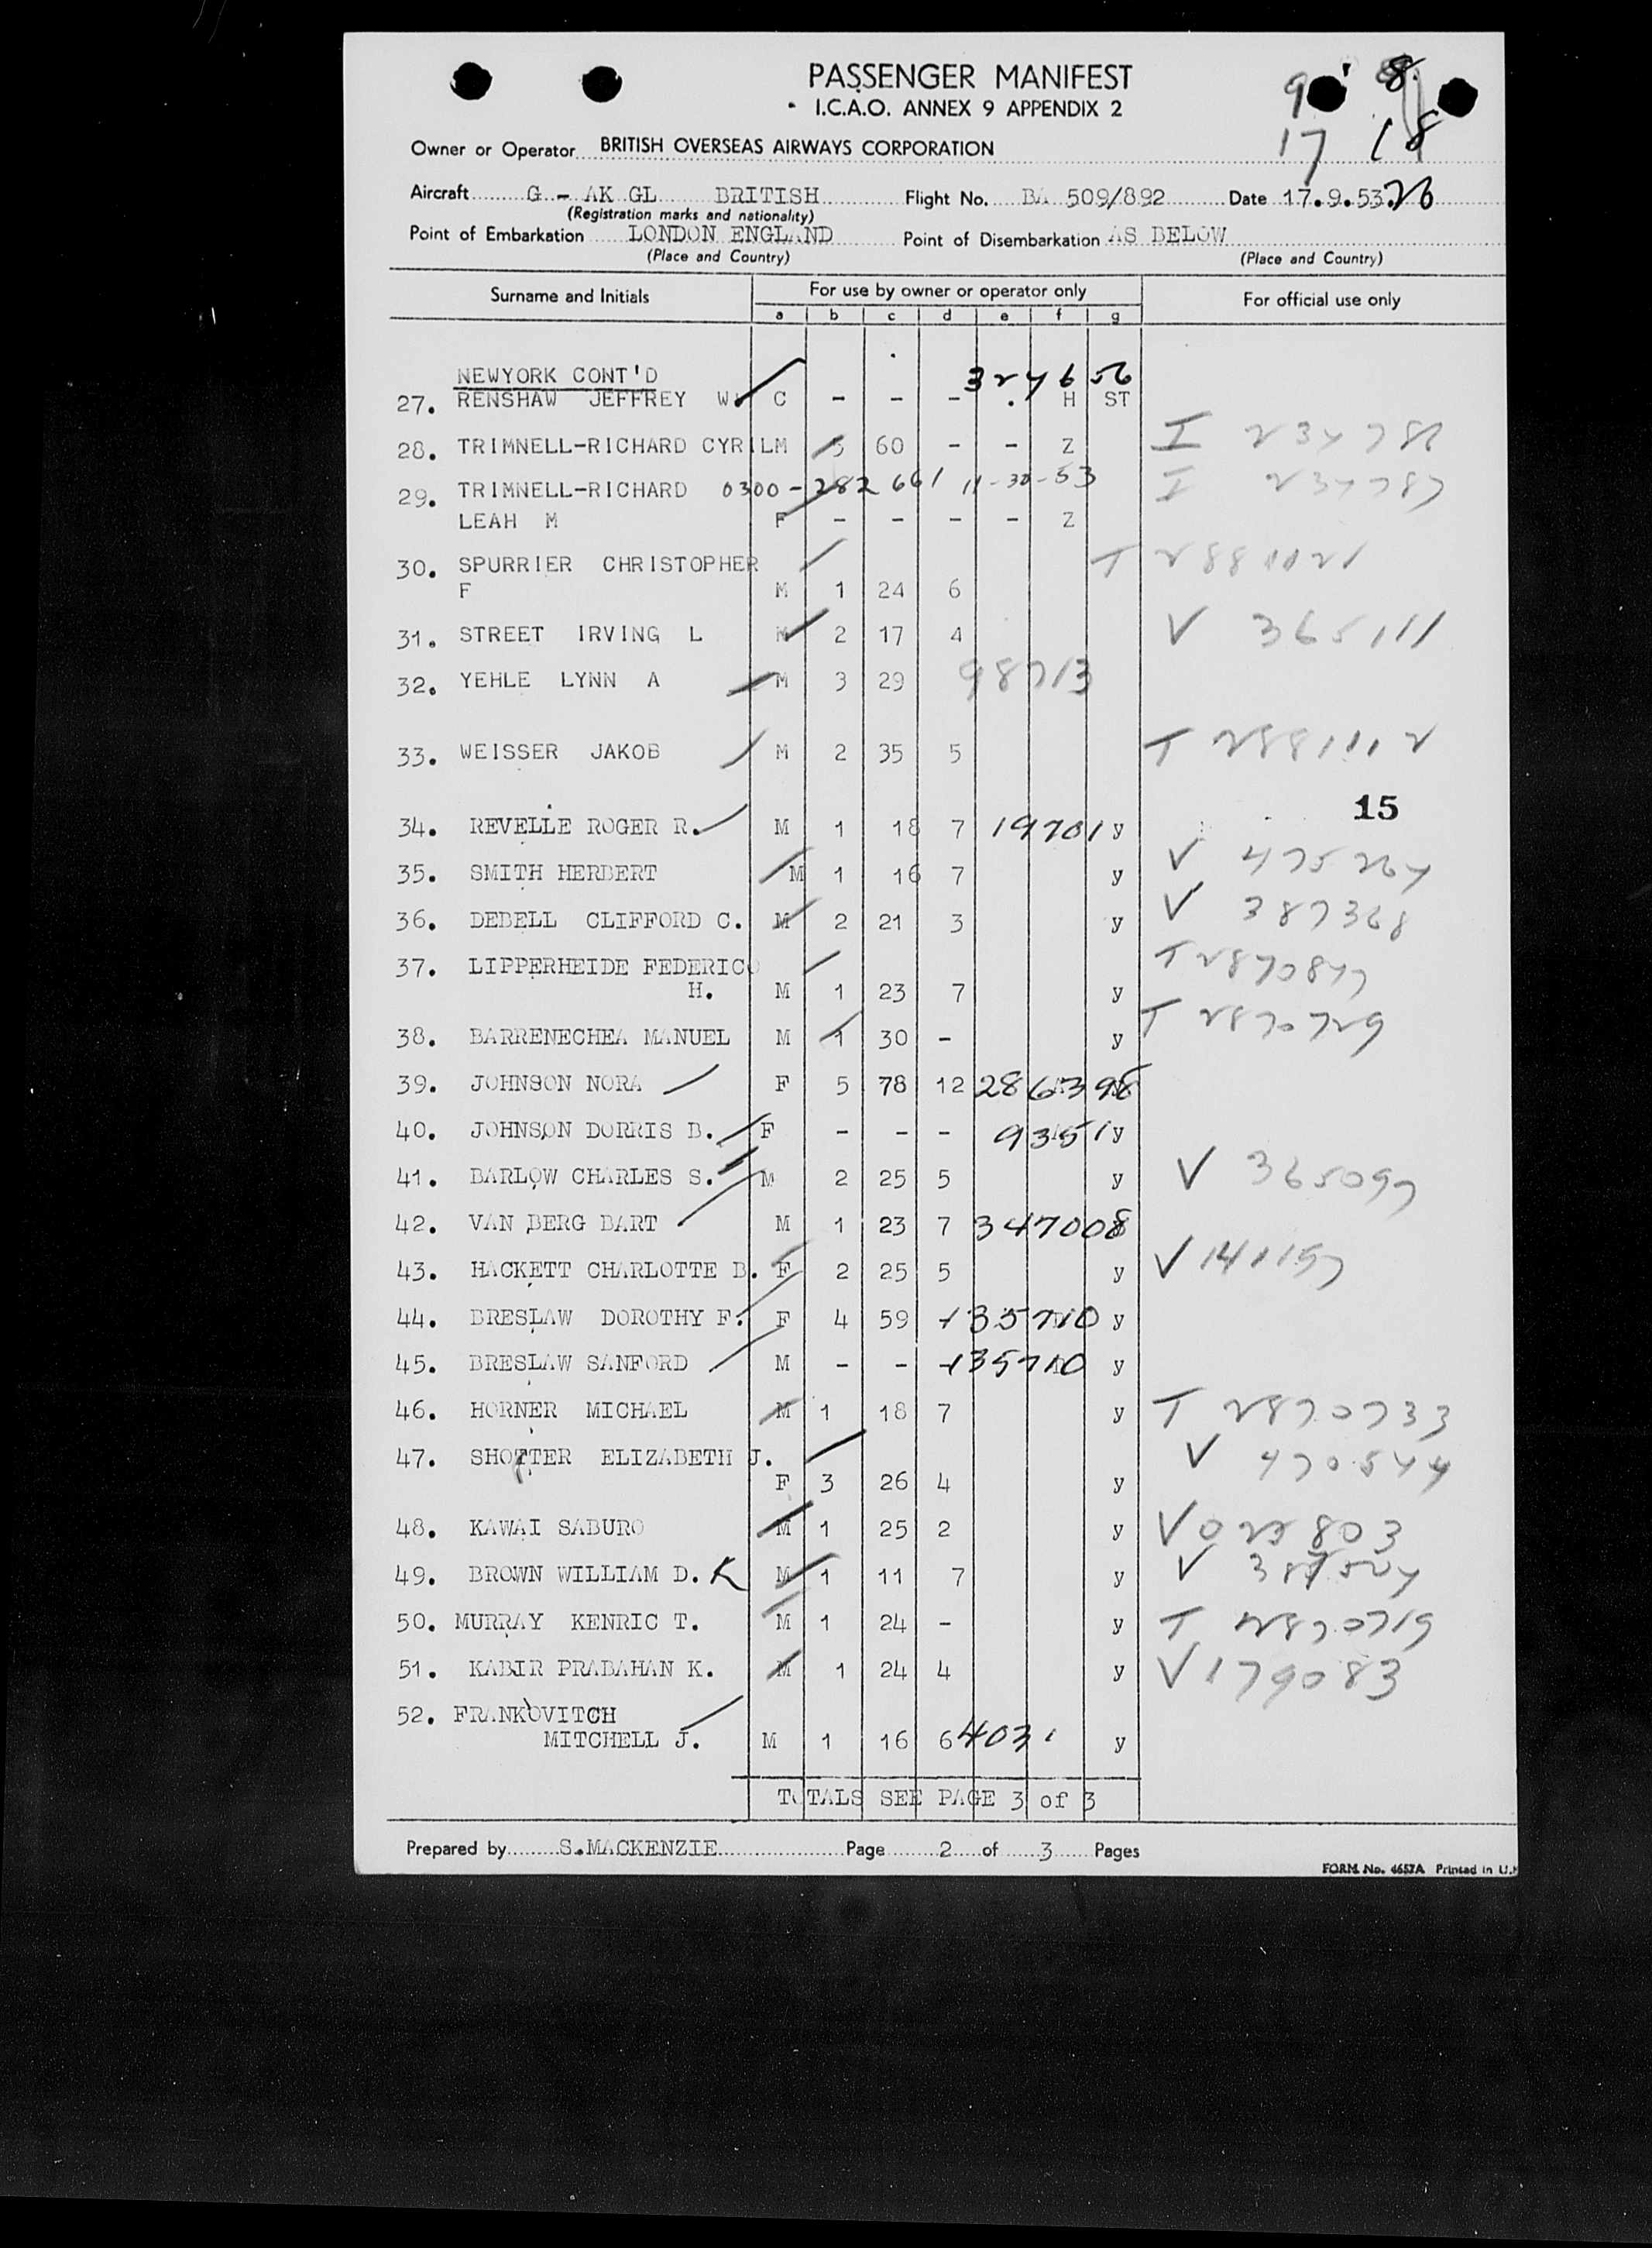 PASSENGER MANIFEST
I.C.A.O. ANNEX 9 APPENDIX 2
9 8
17 18
Owner or Operator BRITISH OVERSEAS AIRWAYS CORPORATION
Aircraft G - AK GL BRITISH Flight No. BA 509/892 Date 17.9.53.
(Registration marks and nationality)
Point of Embarkation LONDON ENGLAND Point of Disembarkation AS BELOW
(Place and Country) (Place and Country)
Surname and Initials For use by owner or operator only For official use only
a b c d e f g
NEWYORK CONT'D
27. RENSHAW JEFFREY W C - - - H ST
28. TRIMNELL-RICHARD CYRIL M 3 60 - - Z
29. TRIMNELL-RICHARD 0300-282 661 11-30-53
LEAH M F - - - - Z
30. SPURRIER CHRISTOPHER
F M 1 24 6
31. STREET IRVING L M 2 17 4 V 365111
32. YEHLE LYNN A M 3 29 98713
33. WEISSER JAKOB M 2 35 5 T 2881112
15
34. REVELLE ROGER R. M 1 18 7 19701 y
35. SMITH HERBERT M 1 16 7 y V 475224
36. DEBELL CLIFFORD C. M 2 21 3 y V 387368
37. LIPPERHEIDE FEDERICO
H. M 1 23 7 y
38. BARRENECHEA MANUEL M 1 30 - y T 2870729
39. JOHNSON NORA F 5 78 12 286398
40. JOHNSON DORRIS B. F - - - 9351 y
41. BARLOW CHARLES S. M 2 25 5 y V 365097
42. VAN BERG BART M 1 23 7 347008
43. HACKETT CHARLOTTE B. F 2 25 5 y V 141157
44. BRESLAW DOROTHY F. F 4 59 135710 y
45. BRESLAW SANFORD M - - 135710 y
46. HORNER MICHAEL M 1 18 7 y T 2870733
47. SHOTTER ELIZABETH J. V 470544
F 3 26 4 y
48. KAWAI SABURO M 1 25 2 y V 023803
49. BROWN WILLIAM D. K M 1 11 7 y V
50. MURRAY KENRIC T. M 1 24 - y T 2870719
51. KABIR PRABAHAN K. M 1 24 4 y V 179083
52. FRANKOVITCH
MITCHELL J. M 1 16 6 4031 y
TOTALS SEE PAGE 3 of 3
Prepared by S.MACKENZIE Page 2 of 3 Pages
FORM No. 4657A Printed in U.K